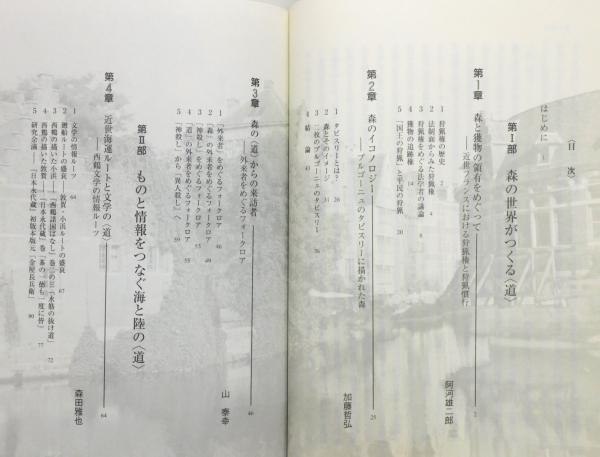 〈目 次〉
はじめに i
第Ⅰ部 森の世界がつくる〈道〉
第1章 森と獲物の領有をめぐって
――近世フランスにおける狩猟権と狩猟慣行 阿河雄二郎 2
1 狩猟権の歴史 2
2 法制面からみた狩猟権 4
3 狩猟権をめぐる法学者の議論 8
4 獲物の追跡権
5 「国王の狩猟」と平民の狩猟 20
第2章 森のイコノロジー
――ブルゴーニュのタピスリーに描かれた森 加藤哲弘 25
1 タピスリーとは? 26
2 森とそのイメージ 31
3 二枚のブルゴーニュのタピスリー 36
4 結論 43
第3章 森の〈道〉からの来訪者
――外来者をめぐるフォークロア 山 泰幸 46
1 「外来者」をめぐるフォークロア 46
2 「森」の外来者をめぐるフォークロア 49
3 「神殺し」をめぐるフォークロア
4 「道」の外来者をめぐるフォークロア 55
5 「神殺し」から「異人殺し」へ 59
第Ⅱ部 ものと情報をつなぐ海と陸の〈道〉
第4章 近世海運ルートと文学の〈道〉
――西鶴文学の情報ルーツ 森田雅也 64
1 文学の情報ルーツ 64
2 廻船ルートの盛衰、敦賀・小浜ルートの盛衰 67
3 西鶴の描いた小浜――『西鶴諸国ばなし』巻三の三「水筋の抜け道」 72
4 西鶴の描いた敦賀――『日本永代蔵』巻「茶の十徳も一度に皆」 77
5 研究余滴――『日本永代蔵』初版本版元「金屋長兵衛」 80